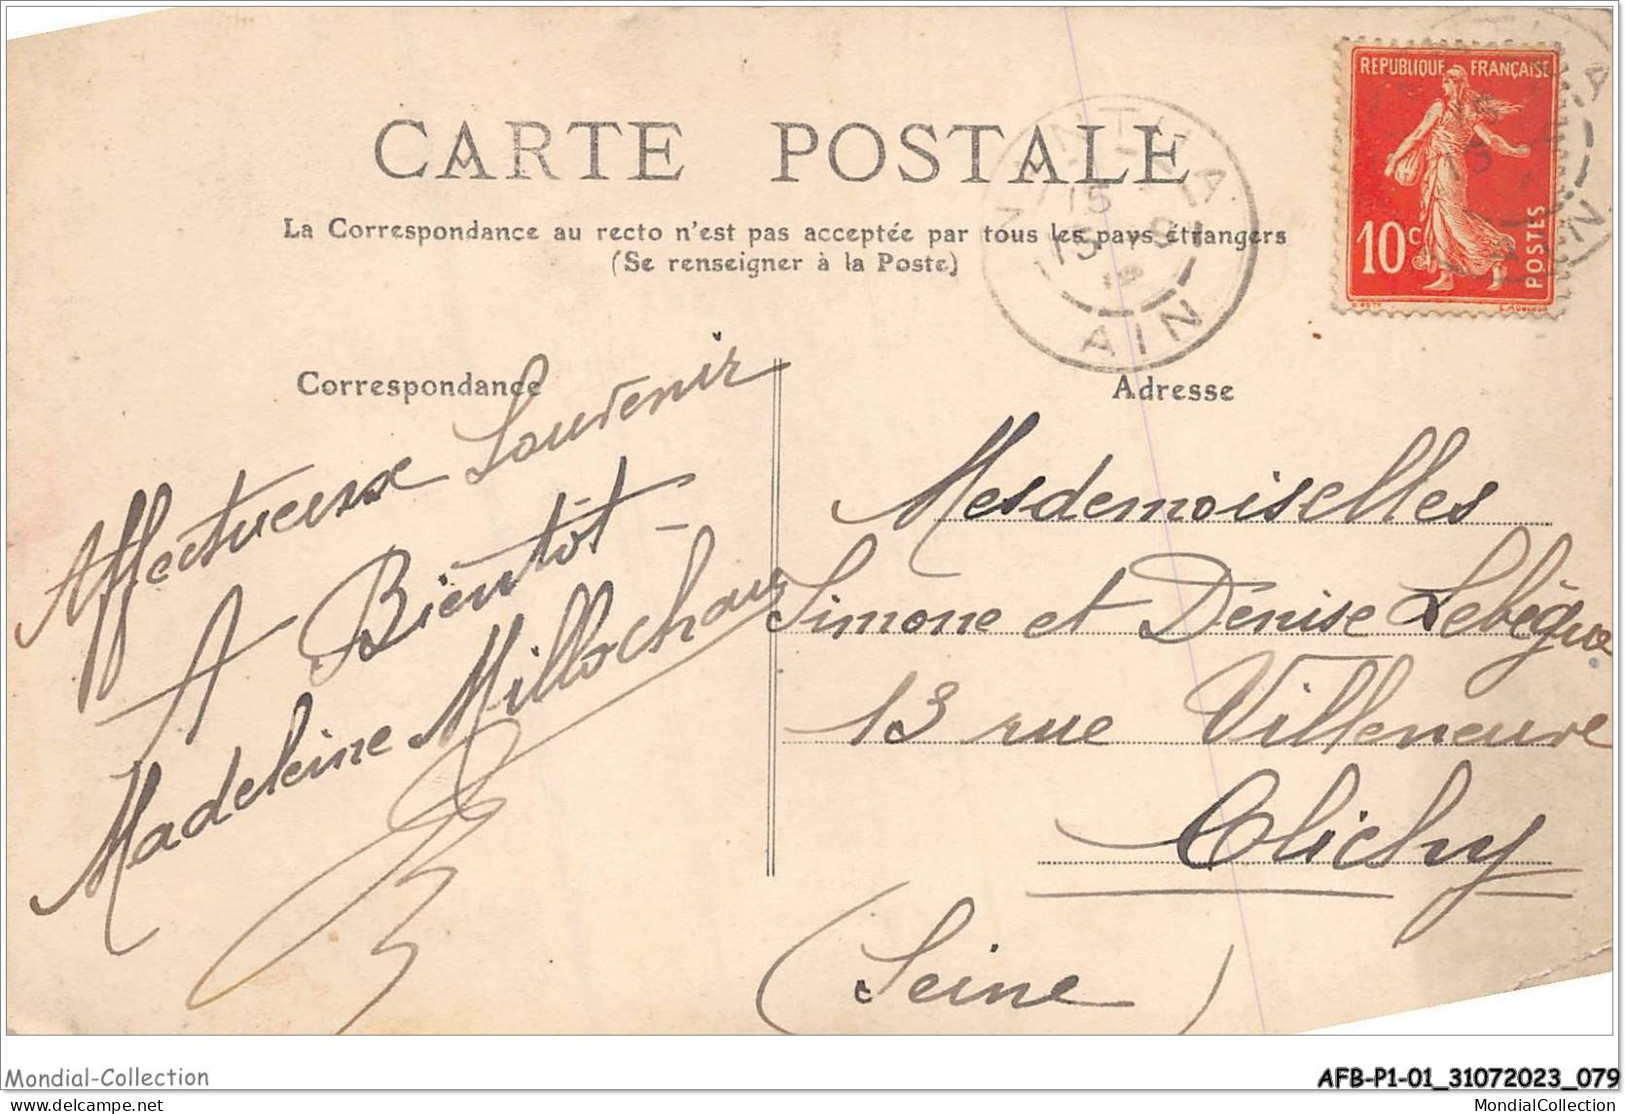 CARTE POSTALE
La Correspondance au recto n'est pas acceptée par tous les pays étrangers
(Se renseigner à la Poste)
REPUBLIQUE FRANÇAISE
10c
POSTES
NANTUA
15
AIN
Correspondance
Adresse
Affectueux Souvenir
A Bientôt -
Madeleine Millochau
Mesdemoiselles
Simone et Denise Lebègue
13 rue Villeneuve
Clichy
(Seine)
Mondial-Collection
AFB-P1-01_31072023_079
www.delcampe.net
MondialCollection